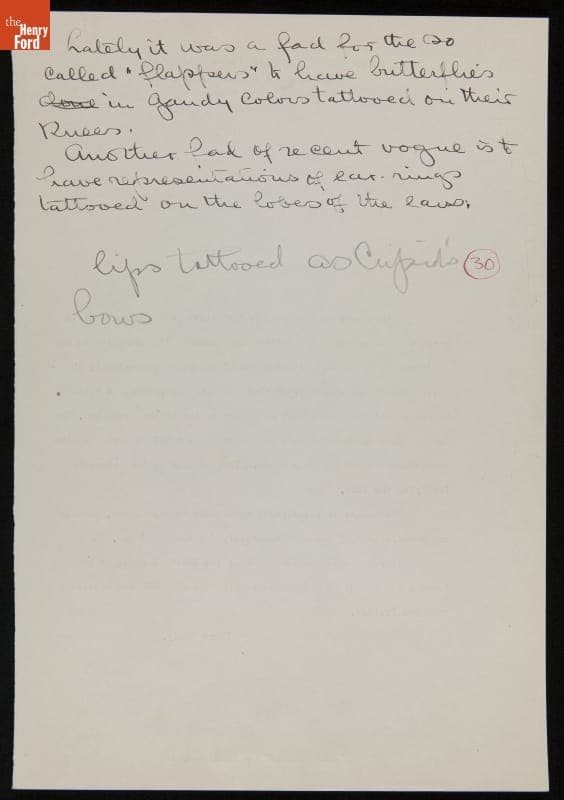 the
Henry
Ford
Lately it was a fad for the so
called "flappers" to have butterflies
done in gaudy colors tattooed on their
Knees.
Another fad of recent vogue is to
have representations of ear-rings
tattooed on the lobes of the ears.
lips tattooed as Cupid's
30
bows